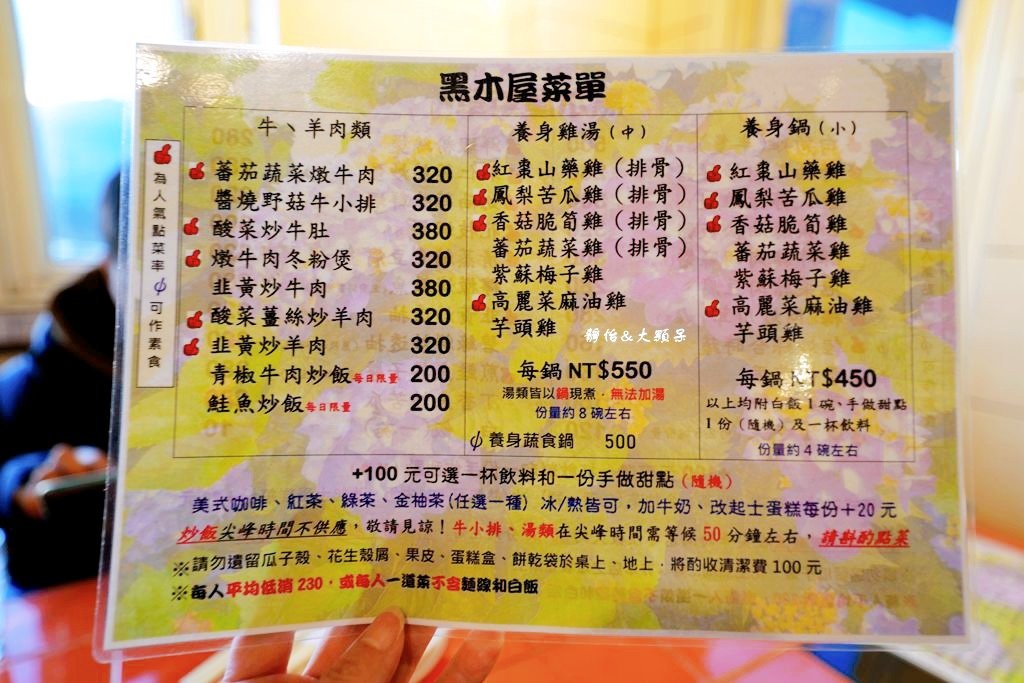 黑木屋菜單
為人氣點菜率 ⏀可作素食
牛、羊肉類
蕃茄蔬菜燉牛肉 320
醬燒野菇牛小排 320
酸菜炒牛肚 380
燉牛肉冬粉煲 320
韭黃炒牛肉 380
酸菜薑絲炒羊肉 320
韭黃炒羊肉 320
青椒牛肉炒飯每日限量 200
鮭魚炒飯每日限量 200
養身雞湯(中)
紅棗山藥雞(排骨)
鳳梨苦瓜雞(排骨)
香菇脆筍雞(排骨)
蕃茄蔬菜雞(排骨)
紫蘇梅子雞
高麗菜麻油雞
芋頭雞
每鍋 NT$550
湯類皆以鍋現煮,無法加湯
份量約 8 碗左右
⏀養身蔬食鍋 500
養身鍋(小)
紅棗山藥雞
鳳梨苦瓜雞
香菇脆筍雞
蕃茄蔬菜雞
紫蘇梅子雞
高麗菜麻油雞
芋頭雞
每鍋 NT$450
以上均附白飯 1 碗、手做甜點
1 份(隨機)及一杯飲料
份量約 4 碗左右
靜怡&大顆呆
+100 元可選一杯飲料和一份手做甜點(隨機)
美式咖啡、紅茶、綠茶、金柚茶(任選一種) 冰/熱皆可,加牛奶、改起士蛋糕每份+20 元
炒飯尖峰時間不供應,敬請見諒!牛小排、湯類在尖峰時間需等候 50 分鐘左右,請斟酌點菜
※請勿遺留瓜子殼、花生殼屑、果皮、蛋糕盒、餅乾袋於桌上、地上,將酌收清潔費 100 元
※每人平均低消 230,或每人一道菜不含麵線和白飯